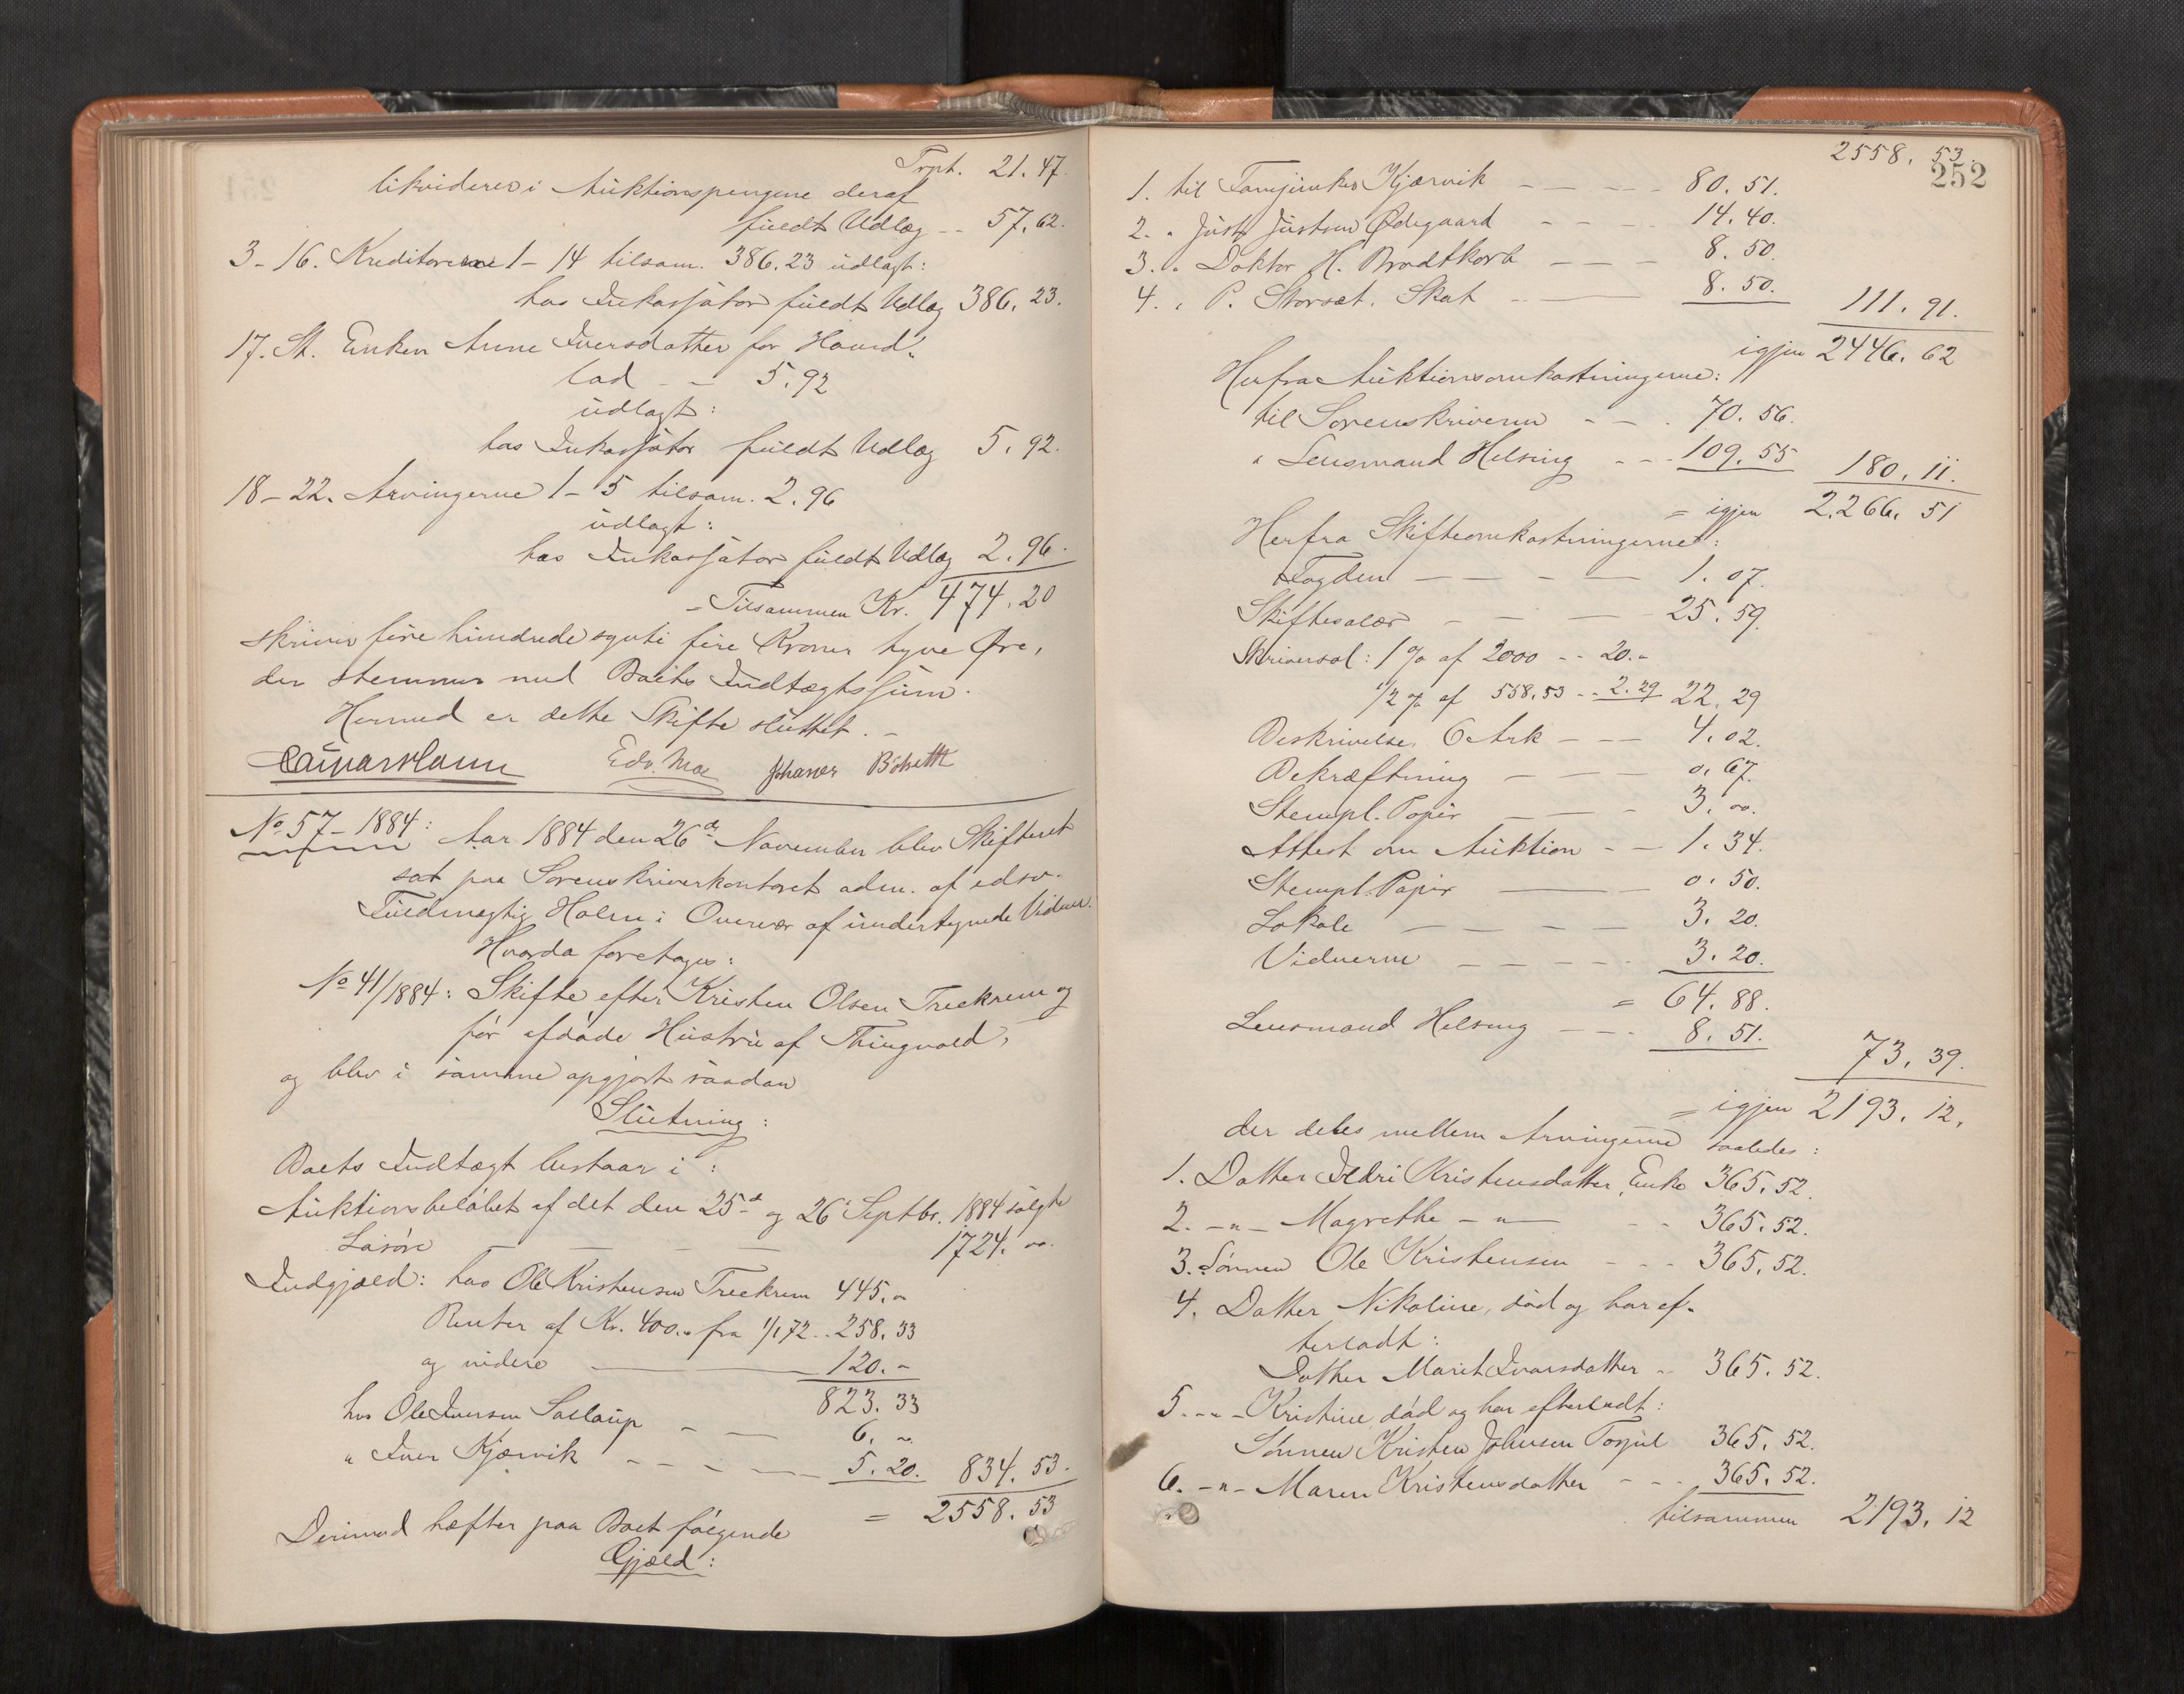 Trpt. 21.47.
likvideres i Auktionspengene deraf
fuldt Udlæg -- 57.62.
3-16. Kreditorerne 1-14 tilsam. 386.23 udlagt:
hos Inkassator fuldt Udlæg 386.23.
17. St. Enken Anne Iversdatter for
lad - - 5.92
udlagt:
hos Inkassator fuldt Udlæg 5.92.
18-22. Arvingerne 1-5 tilsam. 2.96
udlagt:
hos Inkassator fuldt Udlæg 2.96.
= Tilsammen Kr. 474.20
skriver fire hundrede sytti fire Kroner tyve Øre,
der stemmer med Boets Indtægtssum.
Hermed er dette Skifte sluttet. -
Edv. Moe Johanes
No 57-1884: Aar 1884 den 26de November blev Skifteret
sat paa Sorenskriverkontoret adm. af edsv.
Fuldmægtig Holm i Overvær af undertegnede Vidner.
Hvorda foretoges:
No 41/1884: Skifte efter Kristen Olsen Treekrem og
før afdøde Hustru af Thingvold,
og blev i samme opgjort saadan
Slutning:
Boets Indtægt bestaar i:
Auktionsbeløbet af det den 25de og 26de Septbr. 1884 solgte
Løsøre - - - - 1724. "
Indgjæld: hos Ole Kristensen Treekrem 445. "
Renter af Kr. 400." fra 1/1 72 .. 258.33
og videre - 120. "
823.33
hos Ole Iversen - - 6. "
" Iver Kjørvik - - - - 5.20. 834.53.
= 2558.53
Derimod hæfter paa Boet følgende
Gjæld:
2558.53.
252
1. til Kjørvik - - - - 80.51.
2. " Just Justsen Ødegaard - - - 14.40.
3. " Doktor H. Brodtkorb - - - 8.50.
4. " P. Storset, Skat - - 8.50. 111.91.
igjen 2446.62
Herfra Auktionsomkostningerne:
til Sorenskriveren - - - 70.56.
" Lensmand Helsing - - - 109.55 180.11.
= igjen 2,266.51
Herfra Skifteomkostningerne:
Fogden - - - - 1.07.
Skiftesalær - - - 25.59.
Skriversal: 1 % af 2000 - - 20. "
1/2 % af 558.53 - - 2.29 22.29
Beskrivelse, 6 Ark - - - 4.02.
Bekræftning - - - 0.67.
Stempl. Papir - - - 3. "
Attest om Auktion - - 1.34.
Stempl. Papir - - 0.50.
Lokale - - - - 3.20.
Vidnerne - - - - 3.20.
= 64.88.
Lensmand Helsing - - - 8.51. 73.39.
= igjen 2193.12.
der deles mellem Arvingerne saaledes:
1. Datter Ildri Kristensdatter, Enke 365.52.
2. -"- Magrethe -"- - - 365.52.
3. Sønnen Ole Kristensen - - - 365.52.
4. Datter Nikoline, død og har ef-
terladt:
Datter Marit Ivarsdatter - 365.52.
5. -"- Kristine død og har efterladt:
Sønnen Kristen Johnsen 365.52.
6. -"- Maren Kristensdatter - - - 365.52.
tilsammen 2193.12